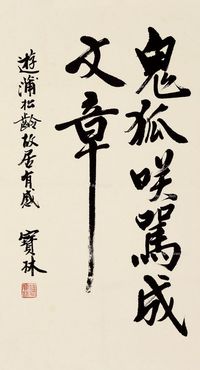 鬼狐咲罵成
文章
遊蒲松齡故居有感
寶林